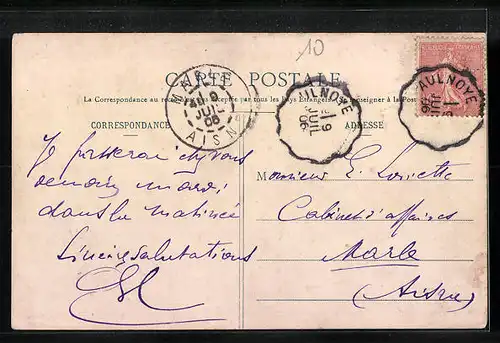 10
CARTE POSTALE
La Correspondance au recto n'est pas acceptée par tous les Pays Etrangers. Se renseigner à la Poste
CORRESPONDANCE
ADRESSE
MARLE
9
JUIL
06
AISNE
AULNOYE
9
JUIL
06
AULNOYE
9
JUIL
06
Je passerai chez vous
demain mardi
dans la matinée
Sincères salutations
Monsieur E.
Cabinet d'affaires
Marle
(Aisne)